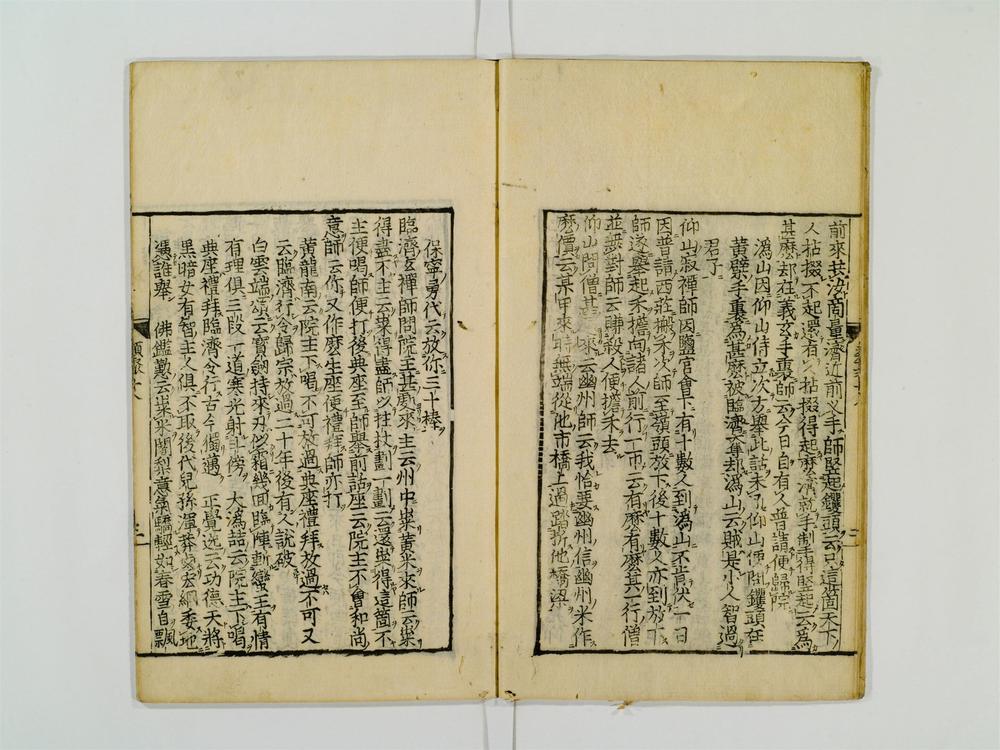 前來共汝商量濟近前叉手師竪起钁頭云只這箇天下
人拈掇不起還有人拈掇得起麼濟就手掣得竪起云為
甚麼却在義玄手裏師云今日自有人普請便歸院
溈山因仰山侍立次方舉此話未了仰山便問钁頭在
黃檗手裏為甚麼被臨濟奪却溈山云賊是小人智過
君子
仰山寂禪師因鹽官會下有十數人到溈山不肯伏一日
因普請西莊搬禾次師至嶺頭放下後十數人亦到放下
師遂舉起禾擔向諸人前行一帀云有麼有麼其一行僧
並無對師云賺殺人便擔禾去
仰山問僧甚 來云幽州師云我恰要幽州信幽州米作
麼價云某甲來時無端從他市橋上過踏折他橋梁
保寧勇代云放你三十棒
臨濟玄禪師問院主甚處來主云州中糶黃米來師云糶
得盡不主云糶得盡師以拄杖劃一劃云還糶得這箇不
主便喝師便打後典座至師舉前話座云院主不會和尚
意師云你又作麼生座便禮拜師亦打
黃龍南云院主下喝不可放過典座禮拜放過不可又
云臨濟行令歸宗放過二十年後有人說破
白雲端頌云寶劒持來刃似霜幾回臨陣斬蠻王有情
有理俱三段一道寒光射斗傍 大溈喆云院主下喝
典座禮拜臨濟令行古今獨邁 正覺逸云功德天將
黑暗女有智主人俱不取後代兒孫渾莽鹵宏綱委地
憑誰舉 佛鑑懃云糶米闍梨意氣驕輕如春雪自飄